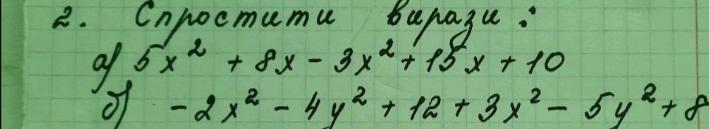 2. Спростити вирази:
а) 5x² + 8x - 3x² + 15x + 10
б) - 2x² - 4y² + 12 + 3x² - 5y² + 8